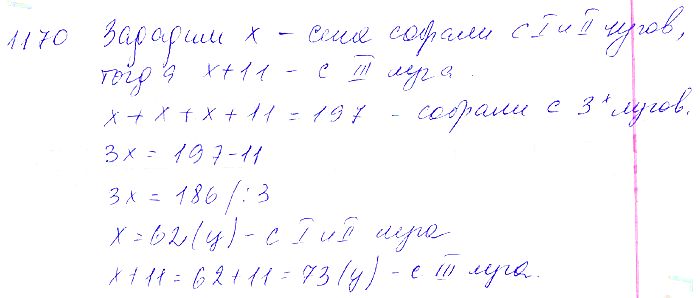 1170 Зададим x - сена собрали с I и II лугов,
тогда x+11 - с III луга.
x + x + x + 11 = 197 - собрали с 3х лугов.
3x = 197-11
3x = 186 /:3
x = 62 (ц) - с I и II луга
x+11 = 62+11 = 73 (ц) - с III луга.